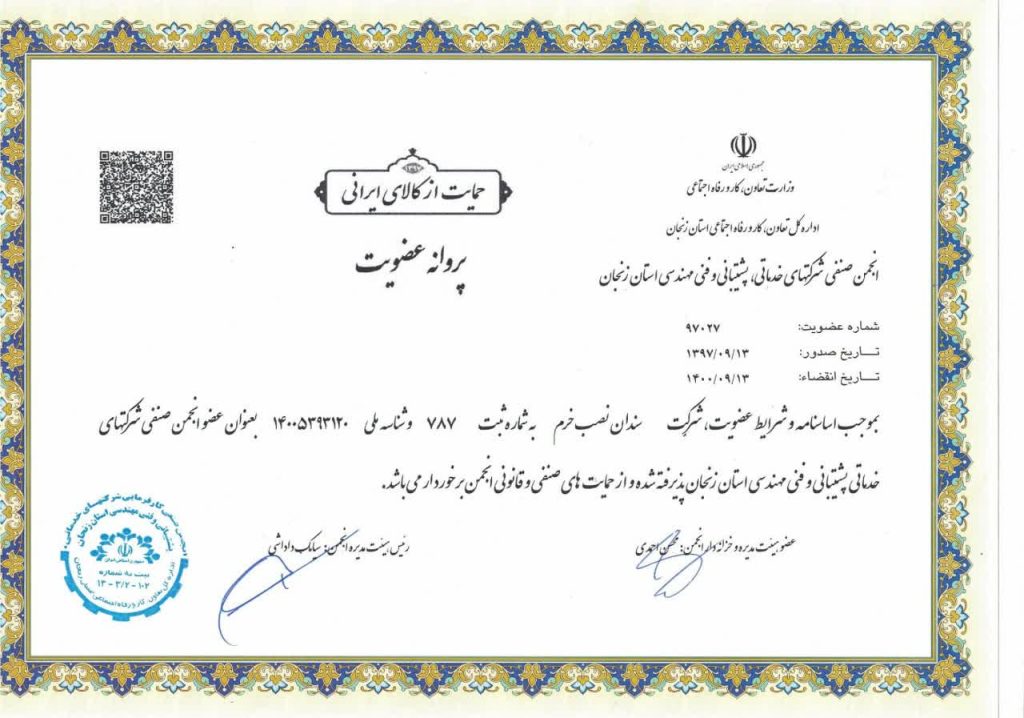 جمهوری اسلامی ایران
وزارت تعاون، کار و رفاه اجتماعی
اداره کل تعاون، کار و رفاه اجتماعی استان زنجان
انجمن صنفی شرکتهای خدماتی، پشتیبانی و فنی مهندسی استان زنجان
حمایت از کالای ایرانی
پروانه عضویت
شماره عضویت: ۹۷۰۲۷
تاریخ صدور: ۱۳۹۷/۰۹/۱۳
تاریخ انقضاء: ۱۴۰۰/۰۹/۱۳
بموجب اساسنامه و شرایط عضویت، شرکت سندان نصب خرم به شماره ثبت ۷۸۷ و شناسه ملی ۱۴۰۰۵۳۹۳۱۲۰ بعنوان عضو انجمن صنفی شرکتهای
خدماتی پشتیبانی و فنی مهندسی استان زنجان پذیرفته شده و از حمایت های صنفی و قانونی انجمن برخوردار می باشد.
عضو هیئت مدیره و خزانه دار انجمن: محسن احدی
رئیس هیئت مدیره انجمن: سیامک داداشی
انجمن صنفی کارفرمایی شرکتهای خدماتی،
پشتیبانی و فنی مهندسی استان زنجان
ثبت به شماره
۱۳-۳/۲-۱۰۲
اداره کل تعاون، کار و رفاه اجتماعی استان زنجان